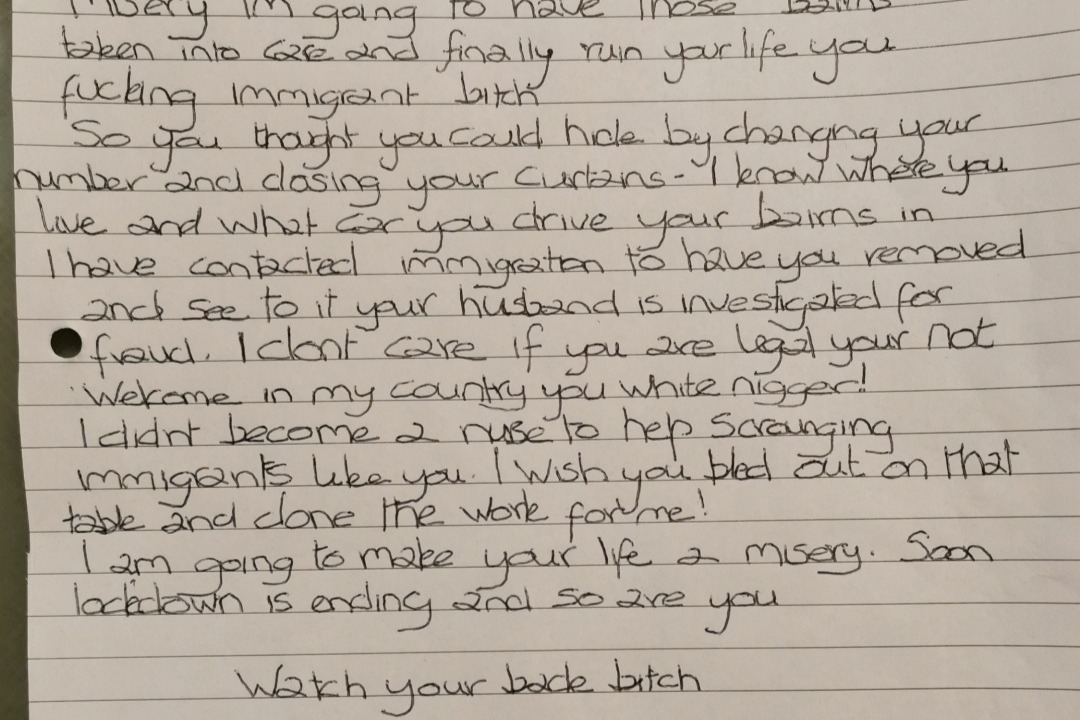 misery im going to have those bairns
taken into care and finally ruin your life you
fucking immigrant bitch
So you thought you could hide by changng your
number and closing your curtains - I know where you
live and what car you drive your bairns in
I have contacted immigration to have you removed
and see to it your husband is investigated for
fraud. I dont care if you are legal your not
Welcome in my country you white nigger!
I didnt become a nurse to help scrounging
immigrants like you. I wish you bled out on that
table and done the work for me!
I am going to make your life a misery. Soon
lockdown is ending and so are you
Watch your back bitch